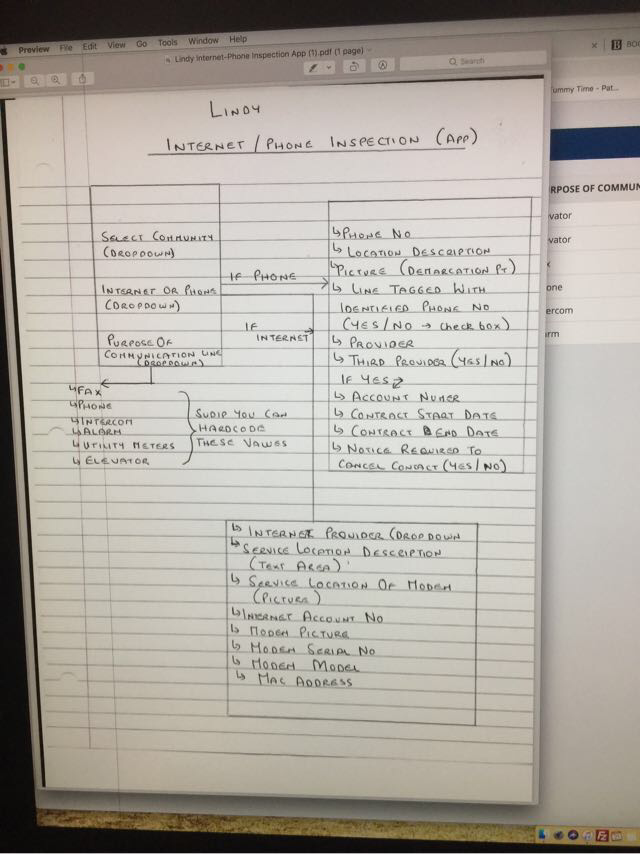 Preview File Edit View Go Tools Window Help
Lindy Internet-Phone Inspection App (1).pdf (1 page)
Search
LINDY
INTERNET / PHONE INSPECTION (APP)
SELECT COMMUNITY
(DROPDOWN)
INTERNET OR PHONE
(DROPDOWN)
PURPOSE OF
COMMUNICATION LINE
(DROPDOWN)
IF PHONE
IF
INTERNET
↳ FAX
↳ PHONE
↳ INTERCOM
↳ ALARM
↳ UTILITY METERS
↳ ELEVATOR
SUDIP YOU CAN
HARDCODE
THESE VALUES
↳ PHONE NO
↳ LOCATION DESCRIPTION
↳ PICTURE (DEMARCATION PT)
↳ LINE TAGGED WITH
IDENTIFIED PHONE NO
(YES/NO → check box)
↳ PROVIDER
↳ THIRD PROVIDER (YES/NO)
IF YES
↳ ACCOUNT NUMER
↳ CONTRACT START DATE
↳ CONTRACT END DATE
↳ NOTICE REQUIRED TO
CANCEL CONTACT (YES/NO)
↳ INTERNET PROVIDER (DROPDOWN
↳ SERVICE LOCATION DESCRIPTION
(TEXT AREA)
↳ SERVICE LOCATION OF MODEM
(PICTURE)
↳ INTERNET ACCOUNT NO
↳ MODEM PICTURE
↳ MODEM SERIAL NO
↳ MODEM MODEL
↳ MAC ADDRESS
B BOO
ummy Time - Pat...
RPOSE OF COMMUN
vator
vator
x
one
ercom
rm